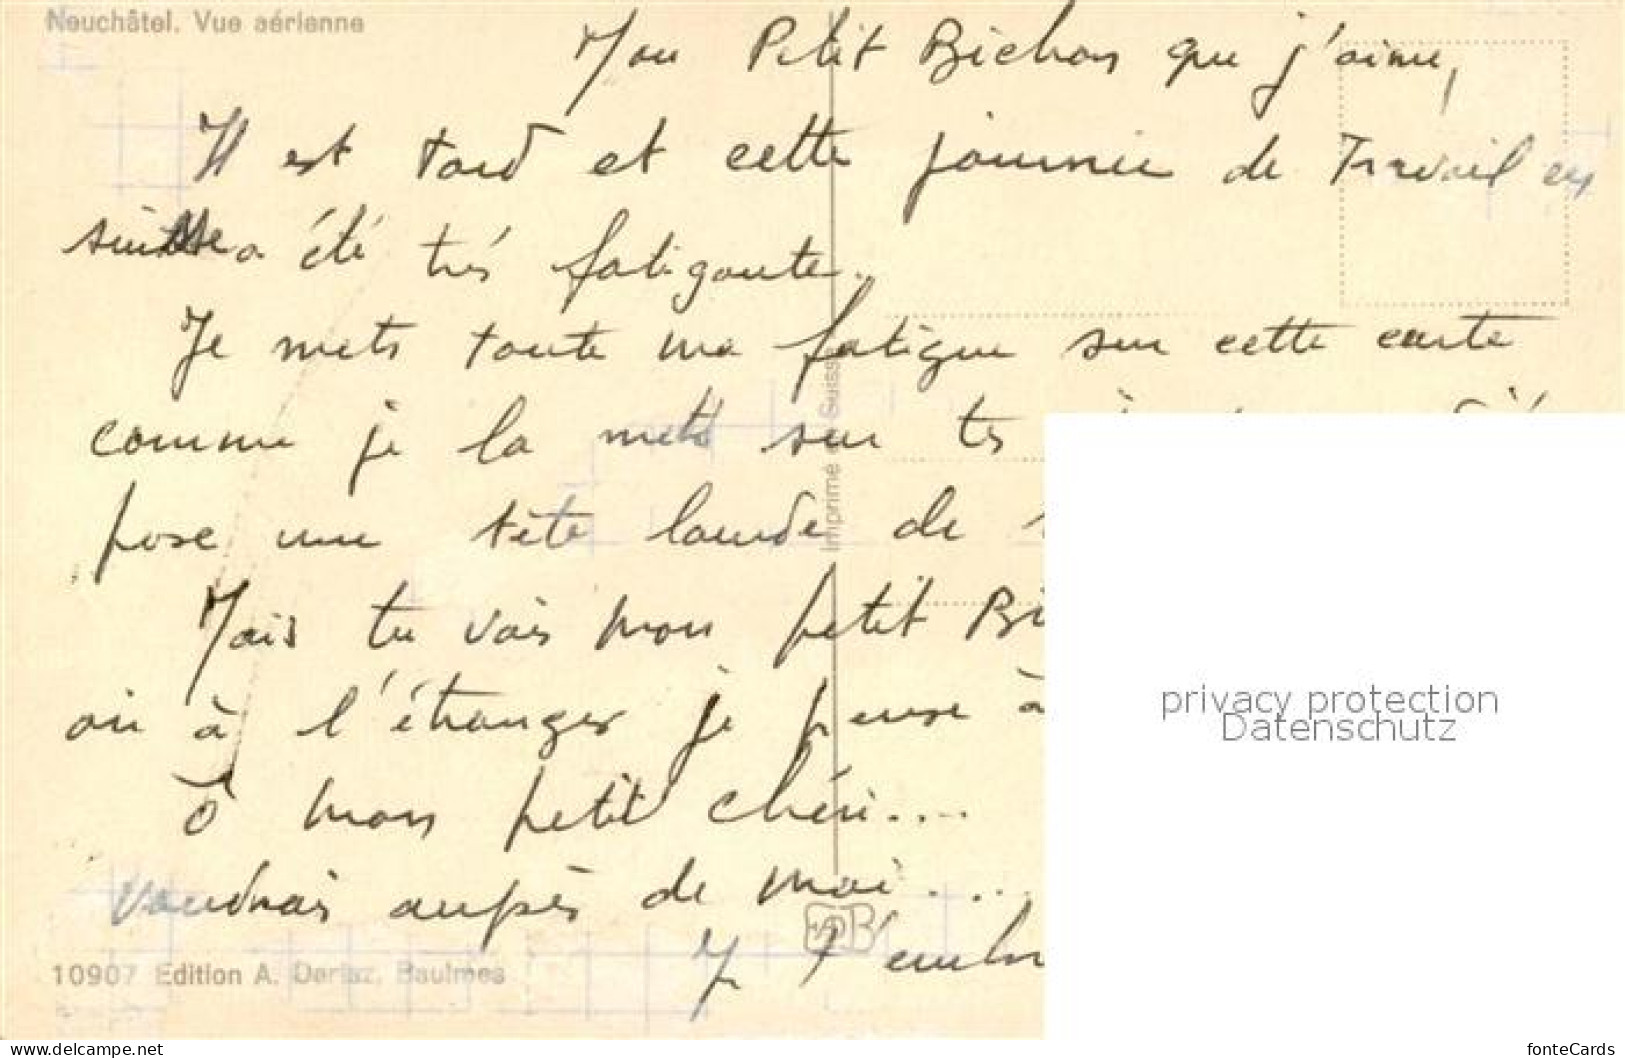 Neuchâtel. Vue aérienne
Mon Petit Bichon que j'aime,
Il est tard et cette journée de Travail en
suisse a été très fatigante.
Je mets toute ma fatigue sur cette carte
comme je la mets sur tes
pose une tête lourde de
Mais tu vois mon petit Bi
où à l'étranger je pense à
Ô mon petit chéri....
Voudrais auprès de moi....
Je t'embr
Imprimé en Suisse
10907 Edition A. Deriaz, Baulmes
privacy protection
Datenschutz
www.delcampe.net
fonteCards